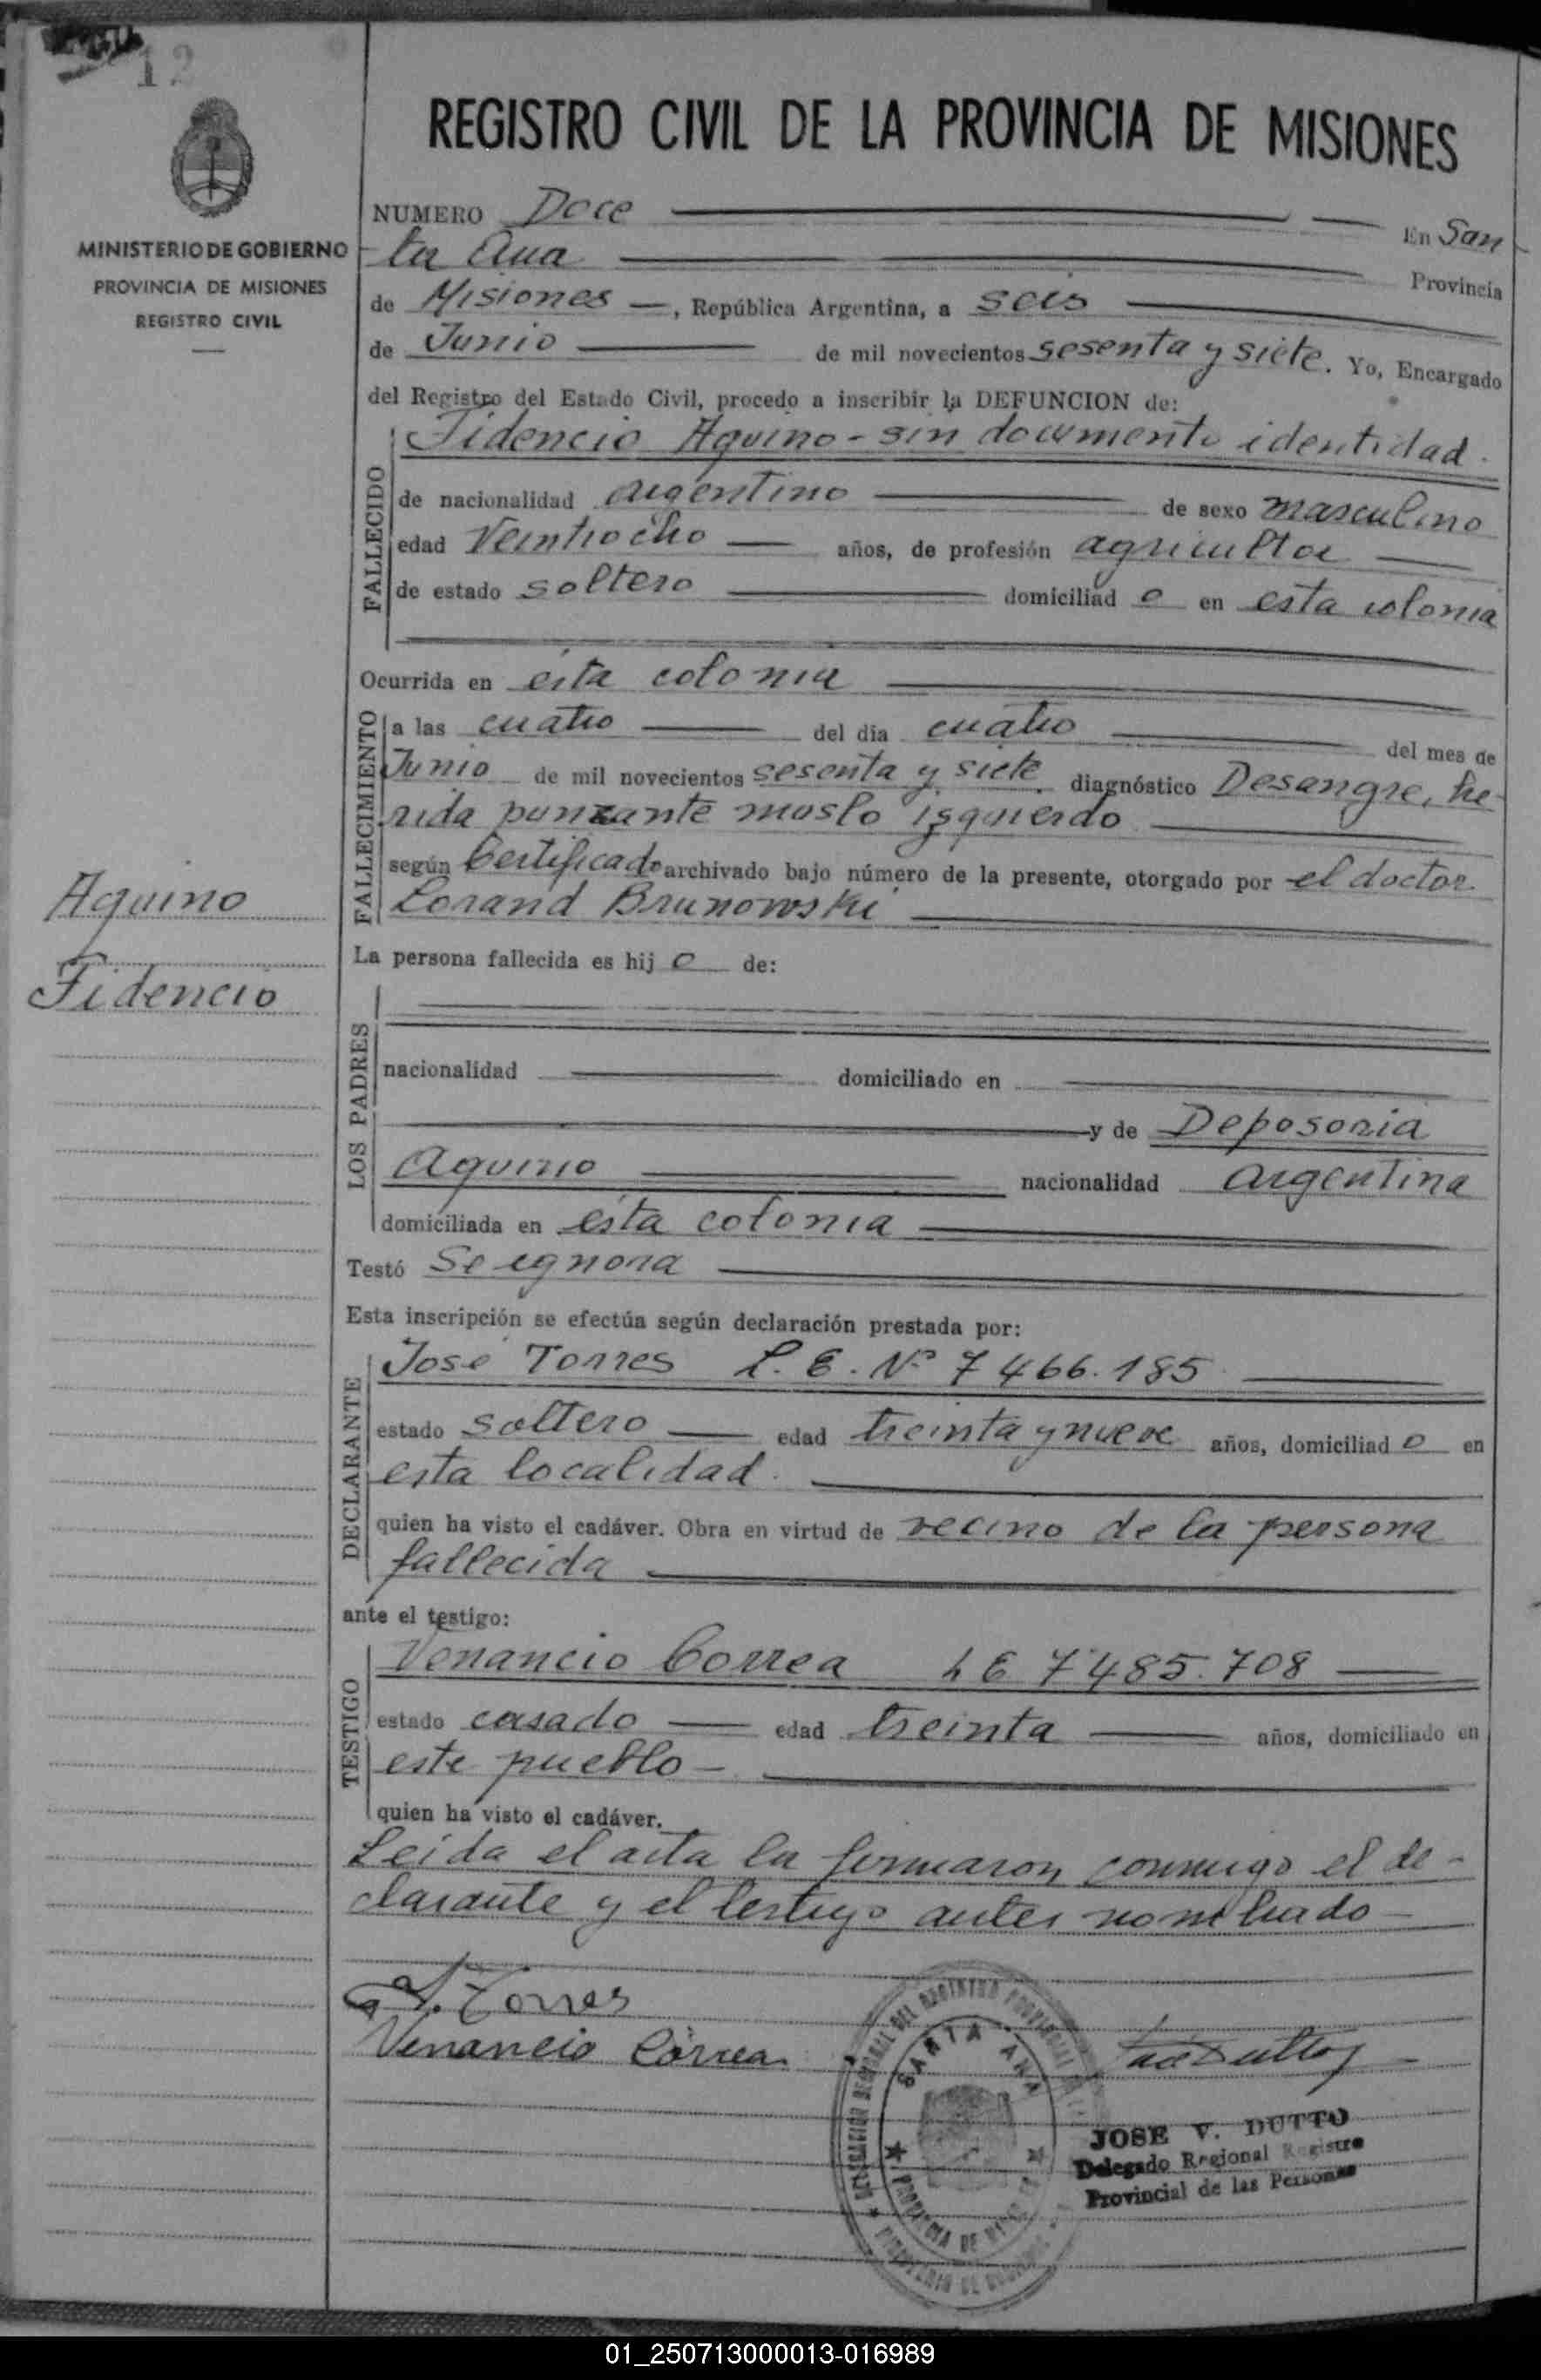 12
REGISTRO CIVIL DE LA PROVINCIA DE MISIONES
MINISTERIO DE GOBIERNO
PROVINCIA DE MISIONES
REGISTRO CIVIL
NUMERO Doce En San
ta Ana Provincia
de Misiones, República Argentina, a seis
de Junio de mil novecientos sesenta y siete. Yo, Encargado
del Registro del Estado Civil, procedo a inscribir la DEFUNCION de:
FALLECIDO
Fidencio Aquino - sin documento identidad.
de nacionalidad argentino de sexo masculino
edad Veintiocho años, de profesión agricultor
de estado soltero domiciliad o en esta colonia
Ocurrida en esta colonia
FALLECIMIENTO
a las cuatro del día cuatro del mes de
Junio de mil novecientos sesenta y siete diagnóstico Desangre, he-
rida punzante muslo izquierdo
según Certificado archivado bajo número de la presente, otorgado por el doctor
Lorand Brunowski
Aquino
Fidencio
La persona fallecida es hij o de:
LOS PADRES
nacionalidad domiciliado en
y de Deposoria
Aquino nacionalidad argentina
domiciliada en esta colonia
Testó Se ignora
Esta inscripción se efectúa según declaración prestada por:
DECLARANTE
José Torres L. E. Nº 7 466.185
estado soltero edad treinta y nueve años, domiciliad o en
esta localidad.
quien ha visto el cadáver. Obra en virtud de vecino de la persona
fallecida
ante el testigo:
TESTIGO
Venancio Correa L E 7 485.708
estado casado edad treinta años, domiciliado en
este pueblo -
quien ha visto el cadáver.
Leída el acta la firmaron conmigo el de-
clarante y el testigo antes nombrado
J. Torres
Venancio Correa
SANTA ANA
JOSE V. DUTTO
Delegado Regional Registro
Provincial de las Personas
01_250713000013-016989